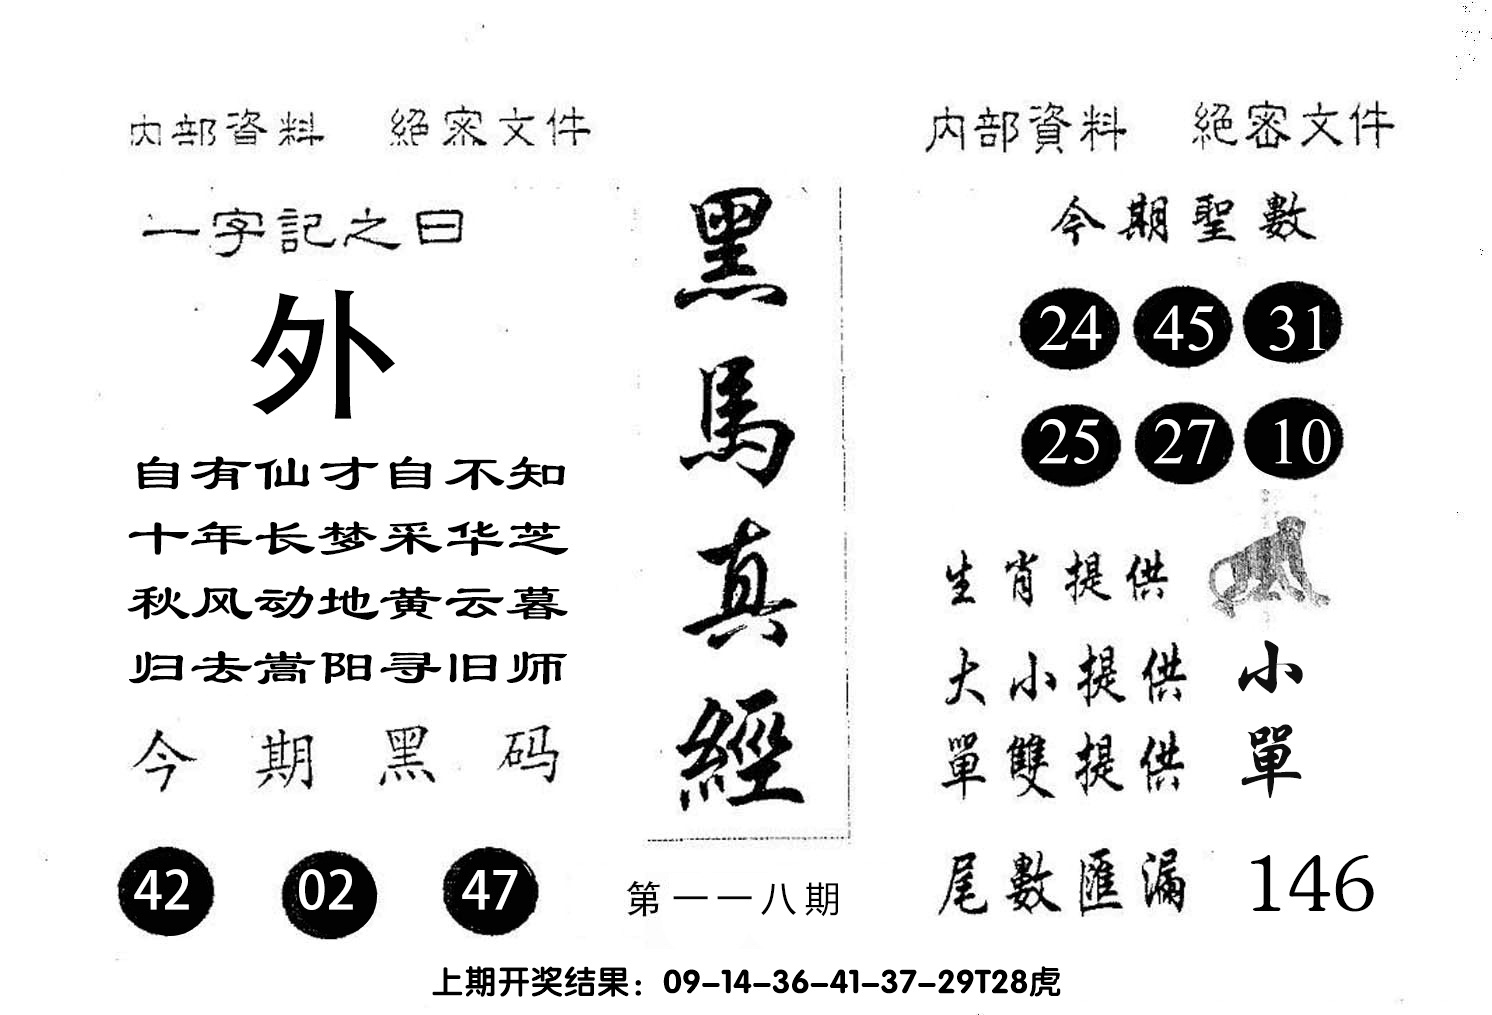 内部資料 絕密文件
一字記之曰
外
自有仙才自不知
十年长梦采华芝
秋风动地黄云暮
归去嵩阳寻旧师
今期黑码
42 02 47
黑馬真經
第一一八期
内部資料 絕密文件
今期聖數
24 45 31
25 27 10
生肖提供
大小提供 小
單雙提供 單
尾數匯漏 146
上期开奖结果：09-14-36-41-37-29T28虎